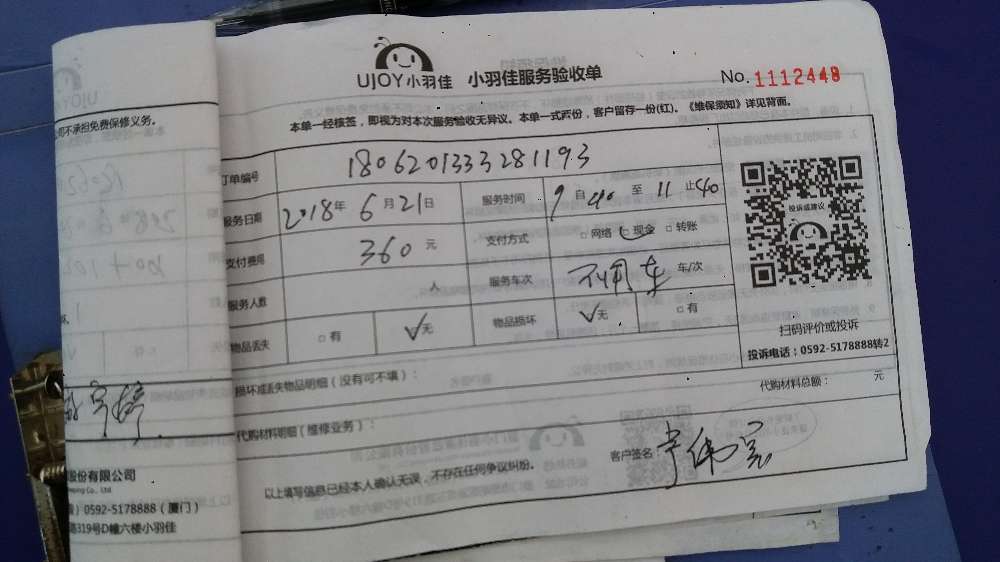 UJOY小羽佳 小羽佳服务验收单 No. 1112448
本单一经核签，即视为对本次服务验收无异议。本单一式两份，客户留存一份(红)、《维保须知》详见背面。
订单编号 1806201333281193
服务日期 2018年 6月21日 服务时间 9自40至11止40
支付费用 360元 支付方式 □网络 ☑现金 □转账
服务人数 人 服务车次 不用车 车/次
物品丢失 □有 ☑无 物品损坏 ☑无 □有
投诉或建议
扫码评价或投诉
投诉电话：0592-5178888转2
损坏或丢失物品明细（没有可不填）：
代购材料明细（维修业务）： 代购材料总额： 元
以上填写信息已经本人确认无误，不存在任何争议纠纷。 客户签名：
公司不承担免费保修义务。
股份有限公司
Hong Co., Ltd
）0592-5178888（厦门）
路319号D幢六楼小羽佳